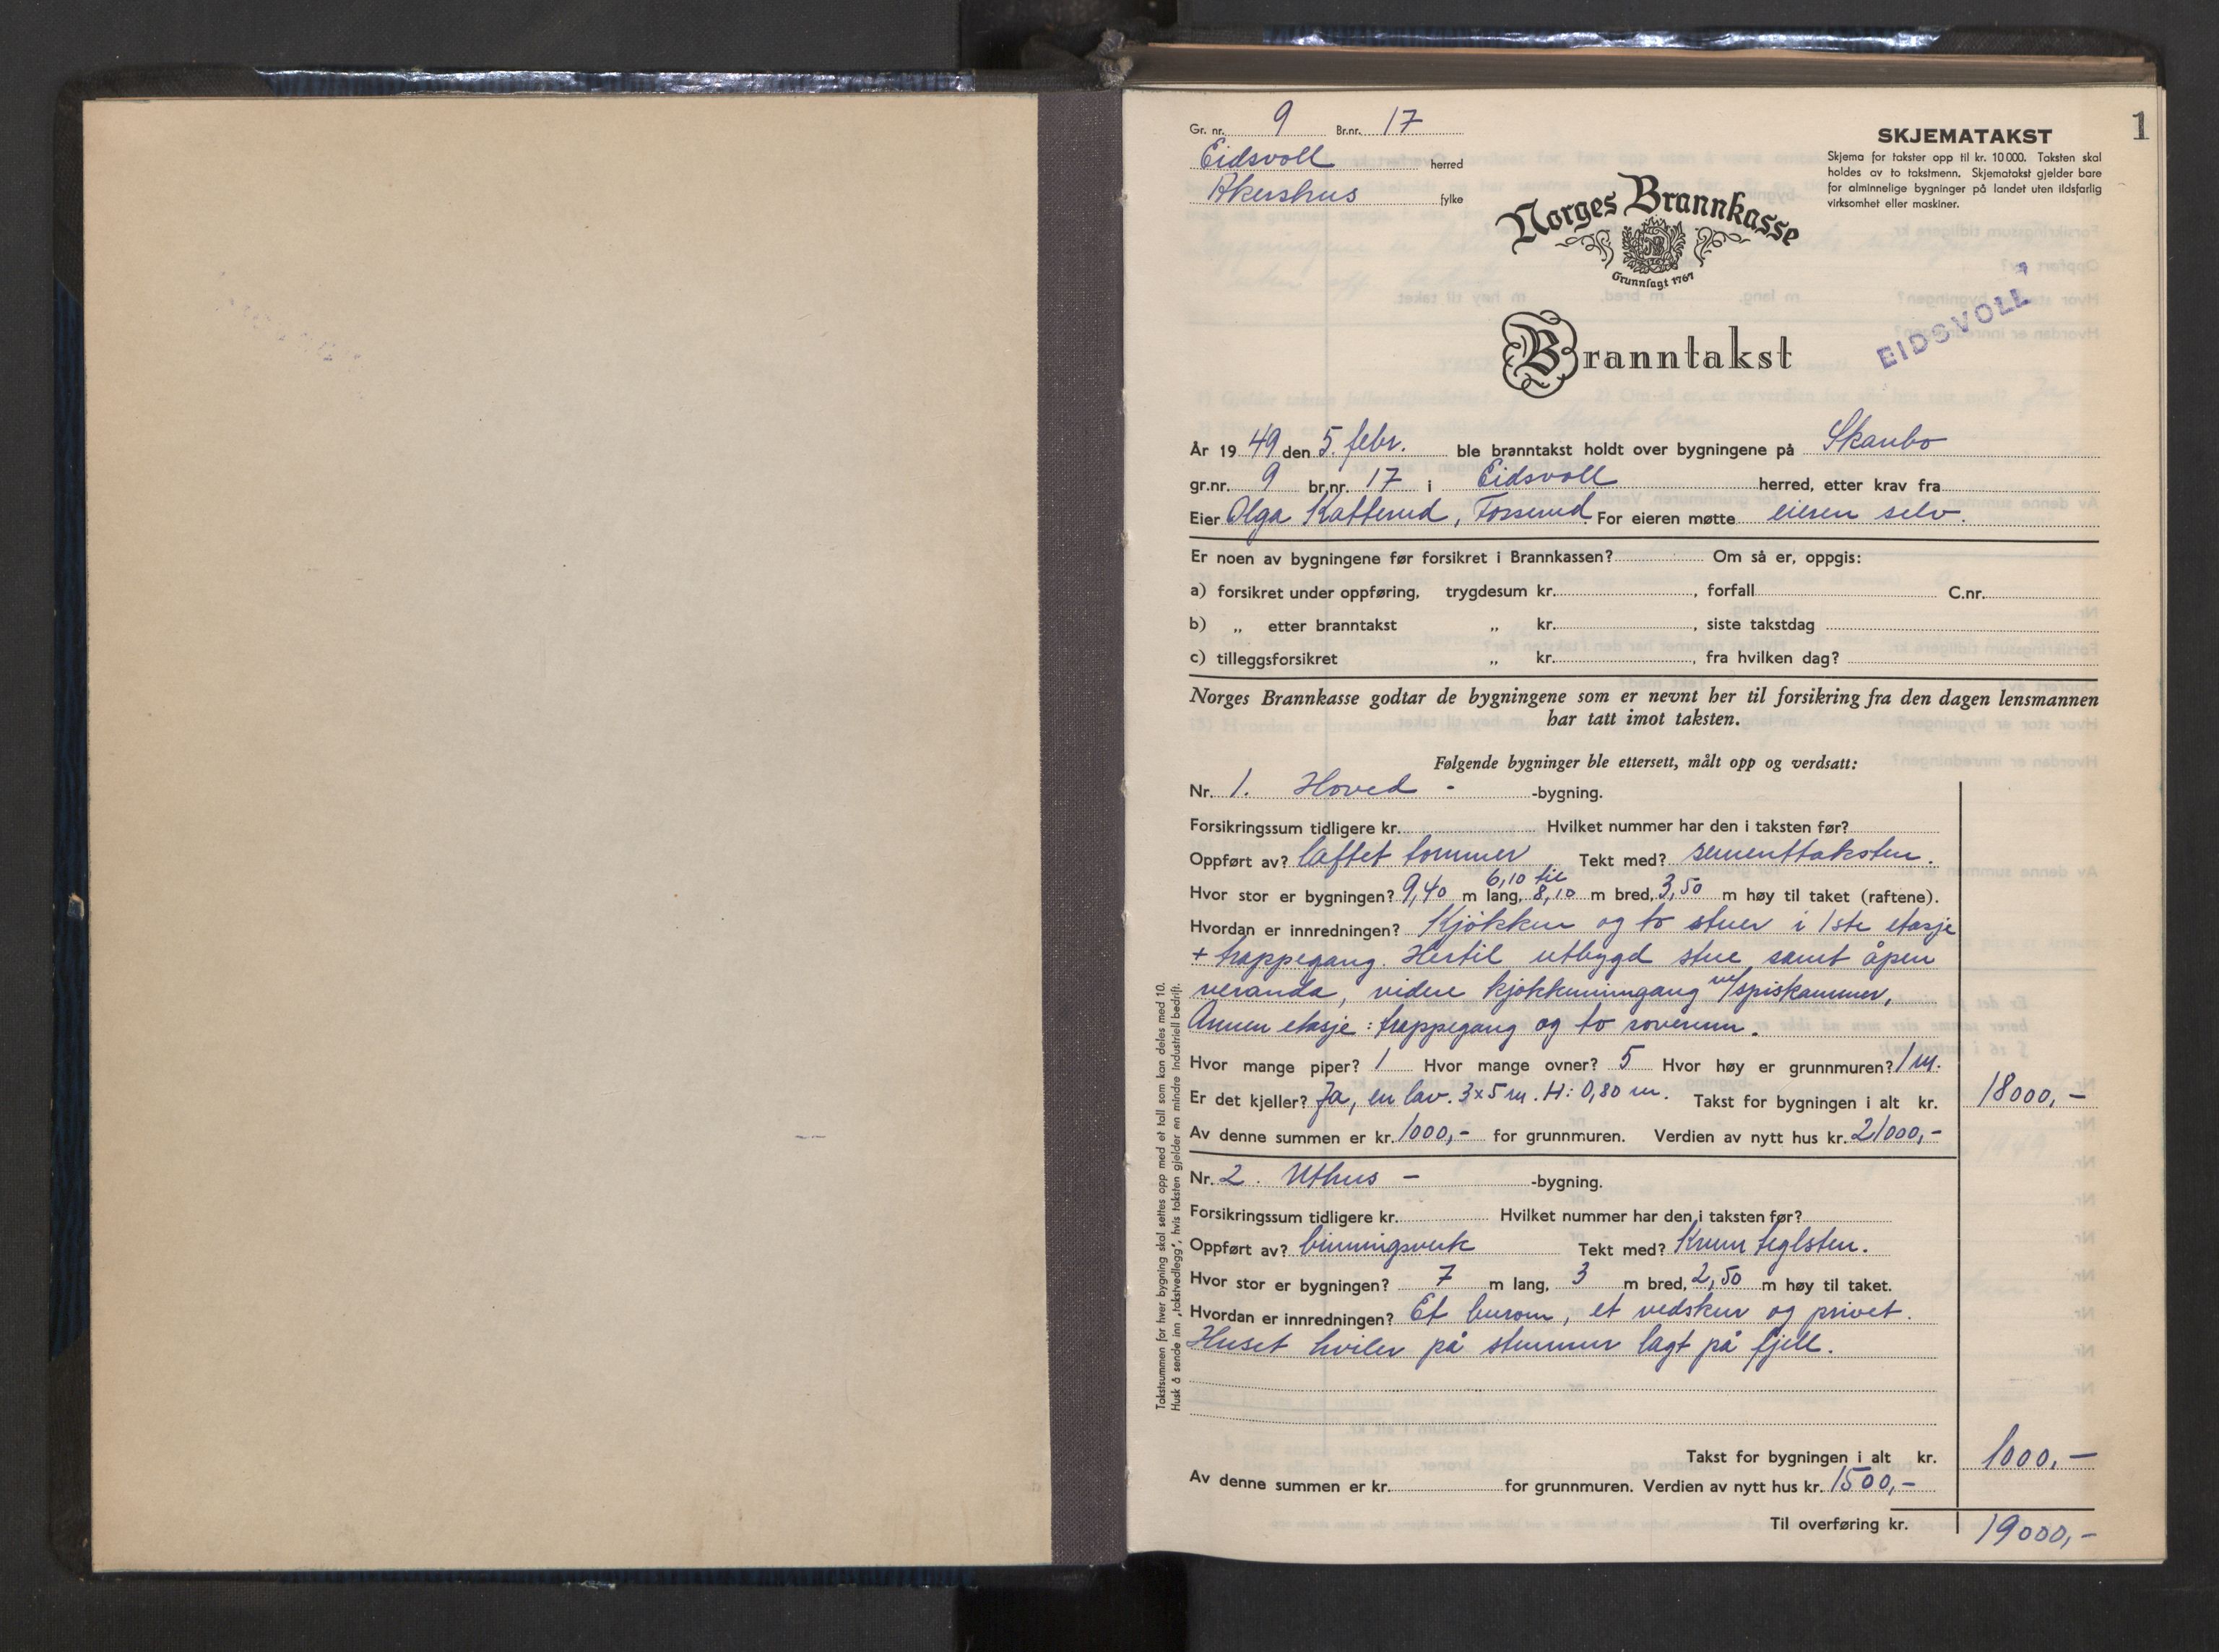 1
Gr. nr. 9 Br.nr. 17
Eidsvoll herred
Akershus fylke
SKJEMATAKST
Skjema for takster opp til kr. 10 000. Taksten skal
holdes av to takstmenn. Skjematakst gjelder bare
for alminnelige bygninger på landet uten ildsfarlig
virksomhet eller maskiner.
Norges Brannkasse
Grunnlagt 1767
EIDSVOLL
Branntakst
År 1949 den 5. febr. ble branntakst holdt over bygningene på Skanbo
gr.nr. 9 br.nr. 17 i Eidsvoll herred, etter krav fra
Eier Olga Katterud, Fossrud For eieren møtte eieren selv.
Er noen av bygningene før forsikret i Brannkassen? Om så er, oppgis:
a) forsikret under oppføring, trygdesum kr. , forfall C.nr.
b) „ etter branntakst „ kr. , siste takstdag
c) tilleggsforsikret „ kr. , fra hvilken dag?
Norges Brannkasse godtar de bygningene som er nevnt her til forsikring fra den dagen lensmannen
har tatt imot taksten.
Følgende bygninger ble ettersett, målt opp og verdsatt:
Nr. 1. Hoved - -bygning.
Forsikringssum tidligere kr. Hvilket nummer har den i taksten før?
Oppført av? laftet tømmer, Tekt med? sementtaksten.
6,10 til
Hvor stor er bygningen? 9,40 m lang, 8,10 m bred, 3,50 m høy til taket (raftene).
Hvordan er innredningen? Kjøkken og to stuer i 1ste etasje
+ trappegang. Hertil utbygd stue samt åpen
veranda, videre kjøkkeninngang m/spiskammer,
Annen etasje: trappegang og to soverum.
Hvor mange piper? 1 Hvor mange ovner? 5 Hvor høy er grunnmuren? 1 m.
Er det kjeller? Ja, en lav. 3x5 m. H: 0,80 m. Takst for bygningen i alt kr. 18000,-
Av denne summen er kr. 1000,- for grunnmuren. Verdien av nytt hus kr. 21000,-
Nr. 2. Uthus - -bygning.
Forsikringssum tidligere kr. Hvilket nummer har den i taksten før?
Oppført av? binningsverk Tekt med? Krum teglsten.
Hvor stor er bygningen? 7 m lang, 3 m bred, 2,50 m høy til taket.
Hvordan er innredningen? Et burom, et vedskur og privet.
Huset hviler på stemmer lagt på fjell.
Takst for bygningen i alt kr. 1000,-
Av denne summen er kr. for grunnmuren. Verdien av nytt hus kr. 1500,-
Til overføring kr. 19000,-
Takstsummen for hver bygning skal settes opp med et tall som kan deles med 10.
Husk å sende inn „takstvedlegg", hvis taksten gjelder en mindre industriell bedrift.